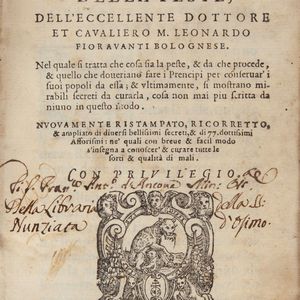 DELLA PESTE,
DELL'ECCELLENTE DOTTORE
ET CAVALIERO M. LEONARDO
FIORAVANTI BOLOGNESE.
Nel quale si tratta che cosa sia la peste, & da che procede,
& quello che doueriano fare i Prencipi per conseruar' i
suoi popoli da essa; & vltimamente, si mostrano mi-
rabili secreti da curarla, cosa non mai piu scritta da
niuno in questo modo.
NVOVAMENTE RISTAMPATO, RICORRETTO,
& ampliato di diuersi bellissimi secreti, & di 77. dottissimi
Afforismi: ne' quali con breue & facil modo
s'insegna a conoscer' & curare tutte le
sorti & qualità di mali.
CON PRIVILEGIO.
di Ancona
Della Libraria della SS.
Nunziata d'Osimo.